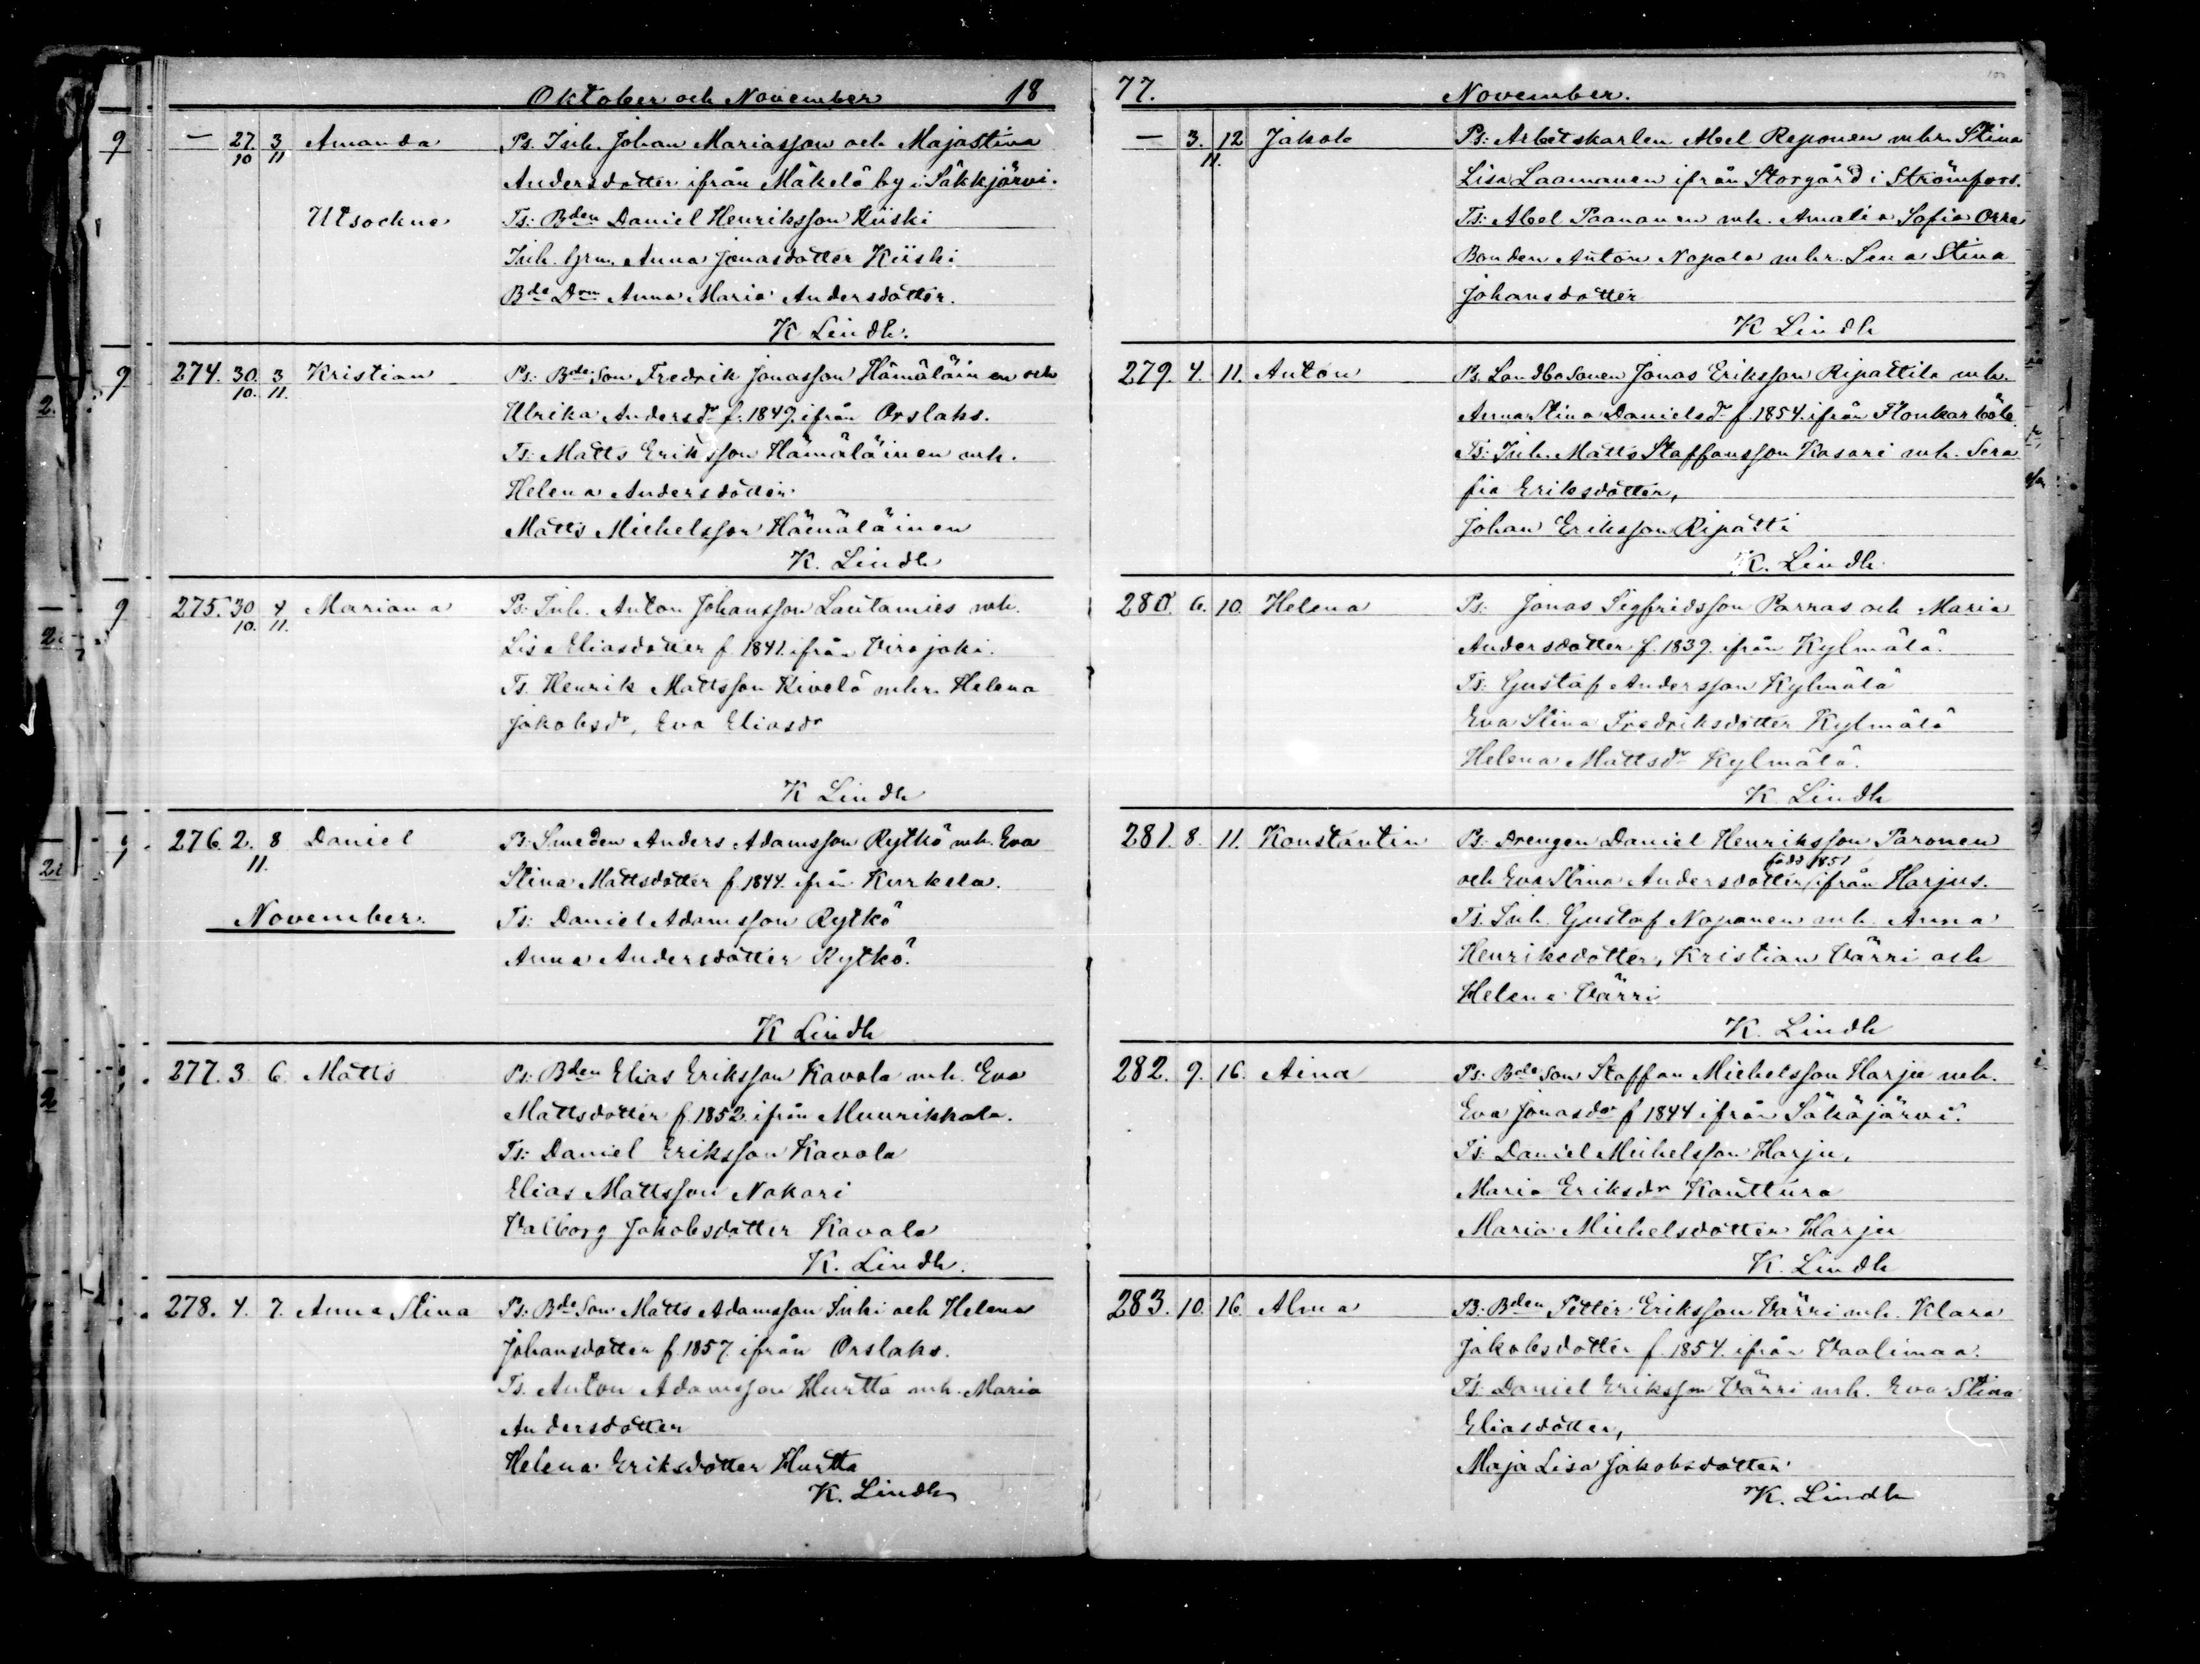 Oktober och November 18
— 27/10 3/11 Amanda Ps. Inh. Johan Mariasson och Majastina
Andersdotter ifrån Mäkelä by i Säkkjärvi.
Utsockne Ts: Bden Daniel Henriksson Kiiski
Inh. Anna Jonasdotter Kiiski
Bde Don Anna Maria Andersdotter.
K Lindh.
274. 30/10. 3/11. Kristian Ps: Bde Son Fredrik Jonasson Hämäläinen och
Ulrika Andersdr f. 1849. ifrån Orslaks.
Ts: Matts Eriksson Hämäläinen mh.
Helena Andersdotter
Matts Michelsson Hämäläinen
K. Lindh
275. 30/10. 4/11. Mariana Ps: Inh. Anton Johansson Lautamies mh.
Lisa Eliasdotter f. 1841. ifrån Virojoki.
Ts. Henrik Mattsson Kivelä mhr Helena
Jakobsdr, Eva Eliasdr
K Lindh
276. 2/11. 8 Daniel Ps: Smeden Anders Adamsson Rytkö mh. Eva
Stina Mattsdotter f. 1844. ifrån Kurkela.
November. Ts: Daniel Adamsson Rytkö
Anna Andersdotter Rytkö.
K Lindh
277. 3. 6. Matts Ps: Bden Elias Eriksson Kavala mh. Eva
Mattsdotter f. 1852. ifrån Muurikkala.
Ts: Daniel Eriksson Kavala
Elias Mattsson Nakari
Valborg Jakobsdotter Kavala
K. Lindh.
278. 4. 7. Anna Stina Ps: Bde Son Matts Adamsson Inki och Helena
Johansdotter f. 1857. ifrån Orslaks.
Ts. Anton Adamsson Hurtta mh. Maria
Andersdotter
Helena Eriksdotter Hurtta
K. Lindh
77. November.
— 3/11. 12 Jakob Ps: Arbetskarlen Abel Reponen mhr Stina
Lisa Laamanen ifrån Storgård i Strömfors.
Ts: Abel Paananen mh. Amalia Sofia Orra
Bonden Anton Nopala mhr. Lena Stina
Johansdotter
K Lindh
279. 4. 11. Anton Ps. Landbosonen Jonas Eriksson Ripattila mh.
Anna Stina Danielsdr f. 1854. ifrån
Ts: Inh. Matts Staffansson Kasari mh. Sera
fia Eriksdotter,
Johan Eriksson Ripatti
K. Lindh.
280. 6. 10. Helena Ps: Jonas Sigfridsson Parras och Maria
Andersdotter f. 1839. ifrån Kylmälä.
Ts: Gustaf Andersson Kylmälä
Eva Stina Fredriksdotter Kylmälä
Helena Mattsdr Kylmälä.
K. Lindh
281. 8. 11. Konstantin Ps. Drengen Daniel Henriksson Paronen
och Eva Stina Andersdotter född 1851 ifrån Harjus.
Ts. Inh. Gustaf Noponen mh. Anna
Henriksdotter, Kristian Värri och
Helena Värri
K. Lindh
282. 9. 16. Aina Ps: Bde Son Staffan Michelsson Harju mh.
Eva Jonasdr f 1844 ifrån Säkäjärvi.
Ts: Daniel Michelsson Harju,
Maria Eriksdr Kanttura
Maria Michelsdotter Harju
K. Lindh
283. 10. 16. Alma Ps: Bden Petter Eriksson Värri mh. Klara
Jakobsdotter f. 1854. ifrån Vaalimaa.
Ts: Daniel Eriksson Värri mh. Eva Stina
Eliasdotter,
Maja Lisa Jakobsdotter
K. Lindh